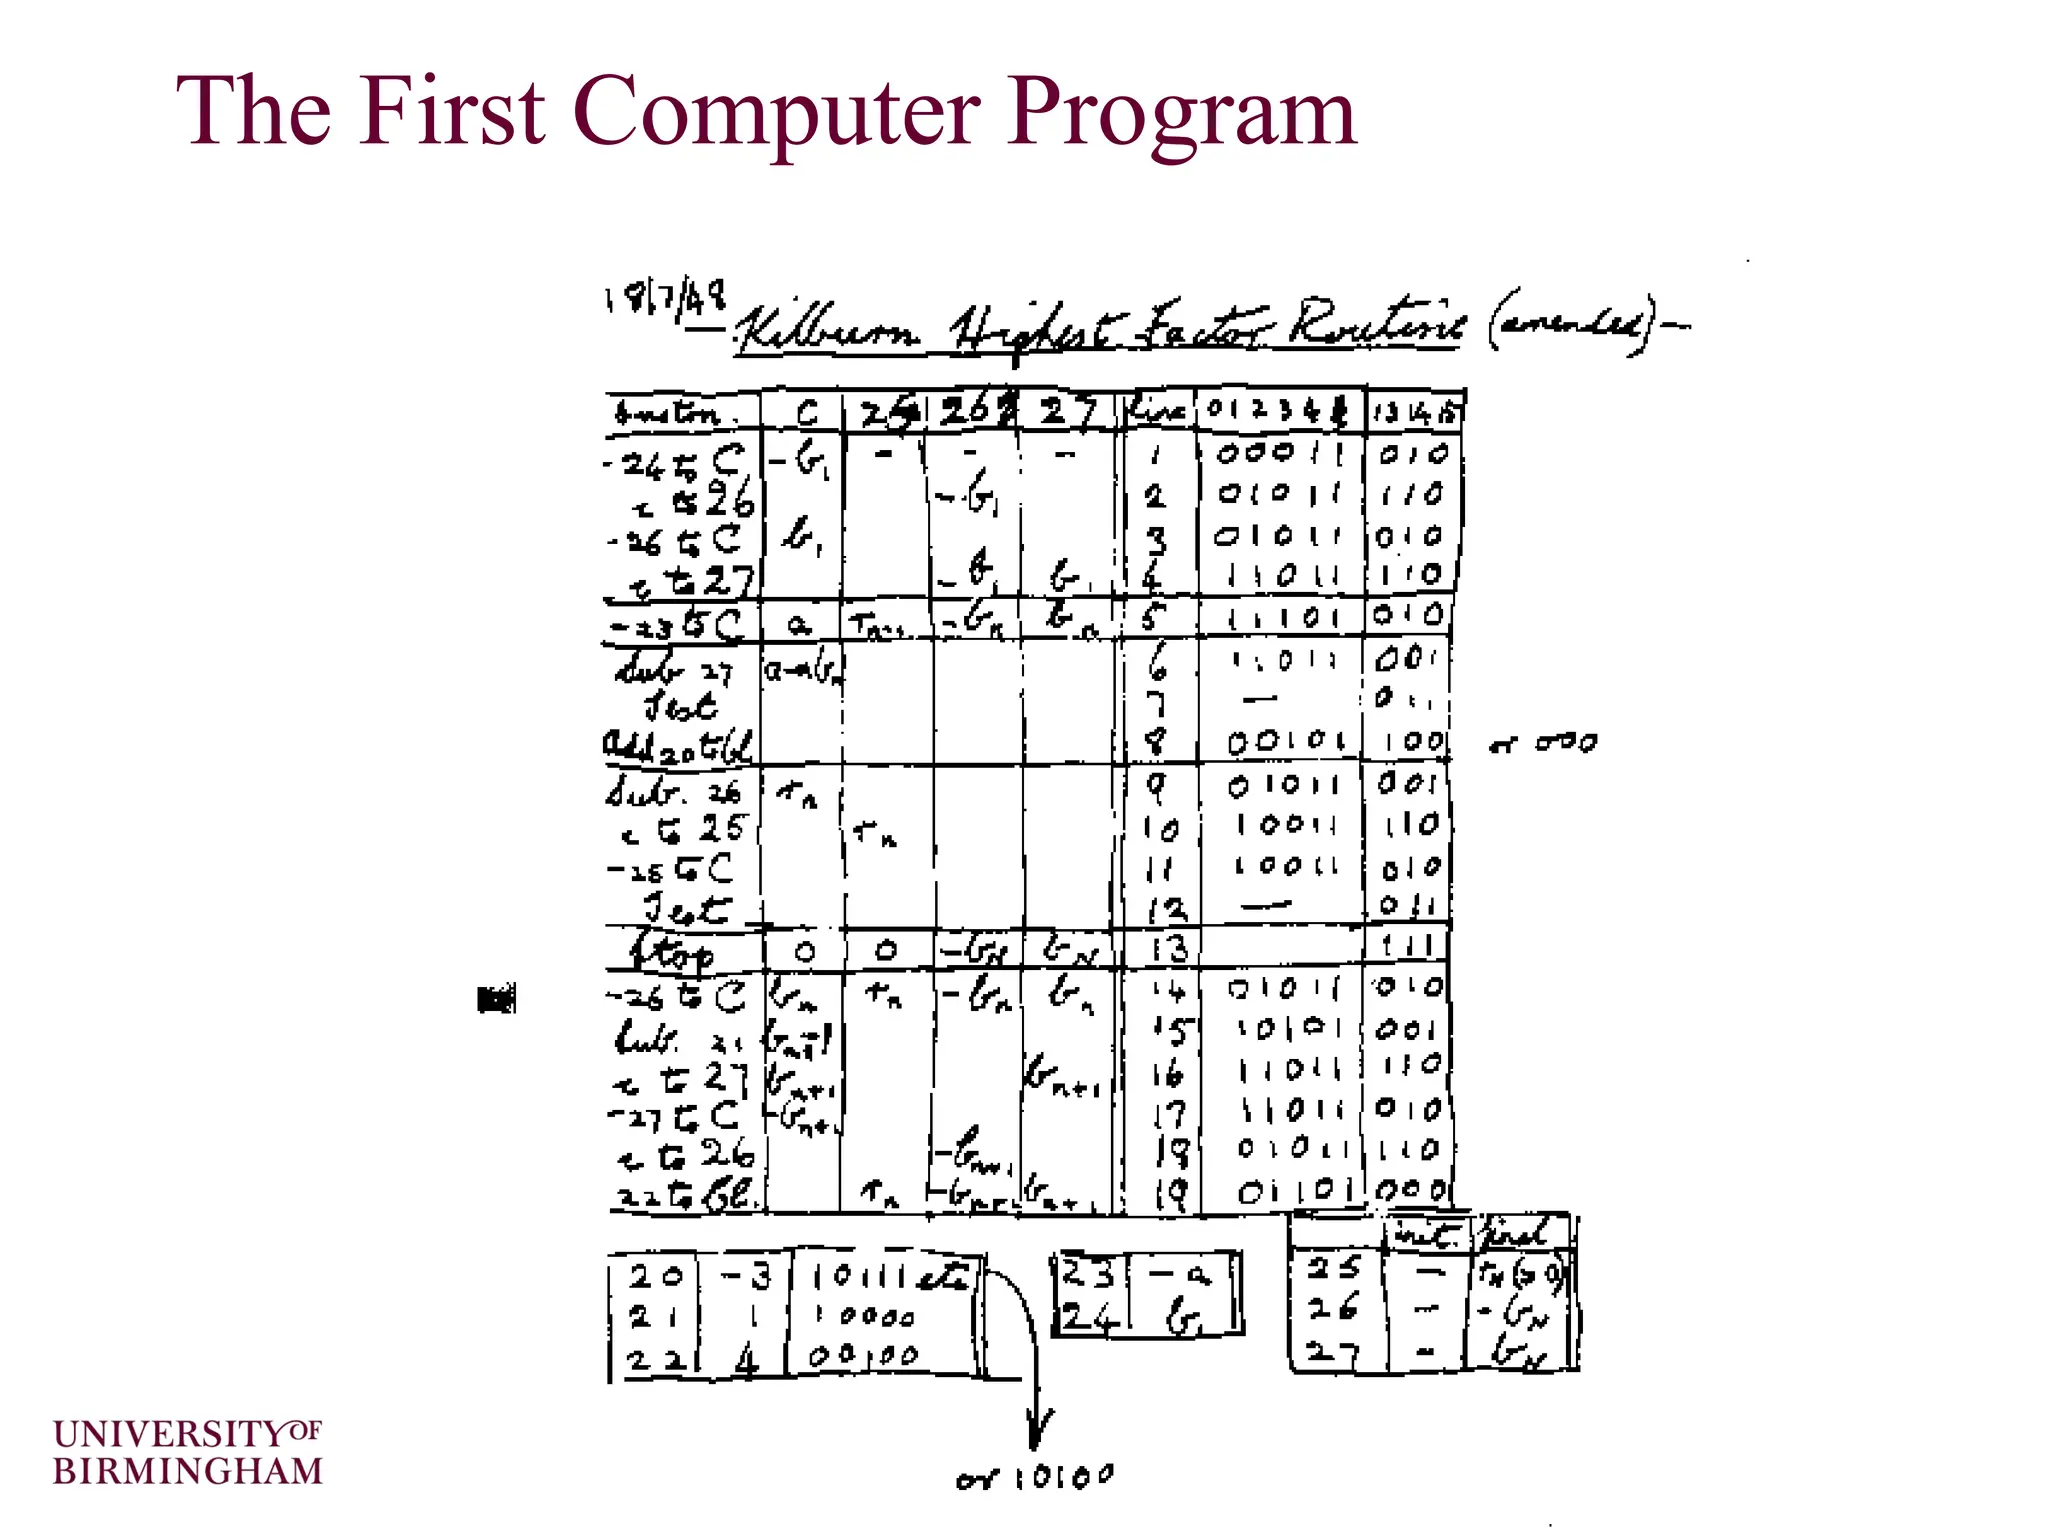 The First Computer Program
18/7/48
Kilburn Highest Factor Routine (amended) -
C 25 26 27 line 0 1 2 3 4 13 14 15
-24 to C -b1 - - - 1 00011 010
c to 26 -b1 2 01011 110
-26 to C b1 3 01011 010
c to 27 -b1 b1 4 11011 110
-23 to C a rn-1 -bn bn 5 11101 010
Sub 27 a-bn 6 11011 001
Test 7 - 011
Add 20 to Cl 8 00101 100 or 000
Sub. 26 rn 9 01011 001
c to 25 rn 10 10011 110
-25 to C 11 10011 010
Test 12 - 011
Stop 0 0 -bN bN 13 111
-26 to C bn rn -bn bn 14 01011 010
Sub. 21 bn+1 15 10101 001
c to 27 bn+1 bn+1 16 11011 110
-27 to C -bn+1 17 11011 010
c to 26 -bn+1 18 01011 110
22 to Cl. rn -bn+1 bn+1 19 01101 000
init. final
20 -3 10111 etc 23 -a 25 - rN(=0)
21 1 10000 24 b1 26 - -bN
22 4 00100 27 - bN
or 10100
UNIVERSITY OF
BIRMINGHAM